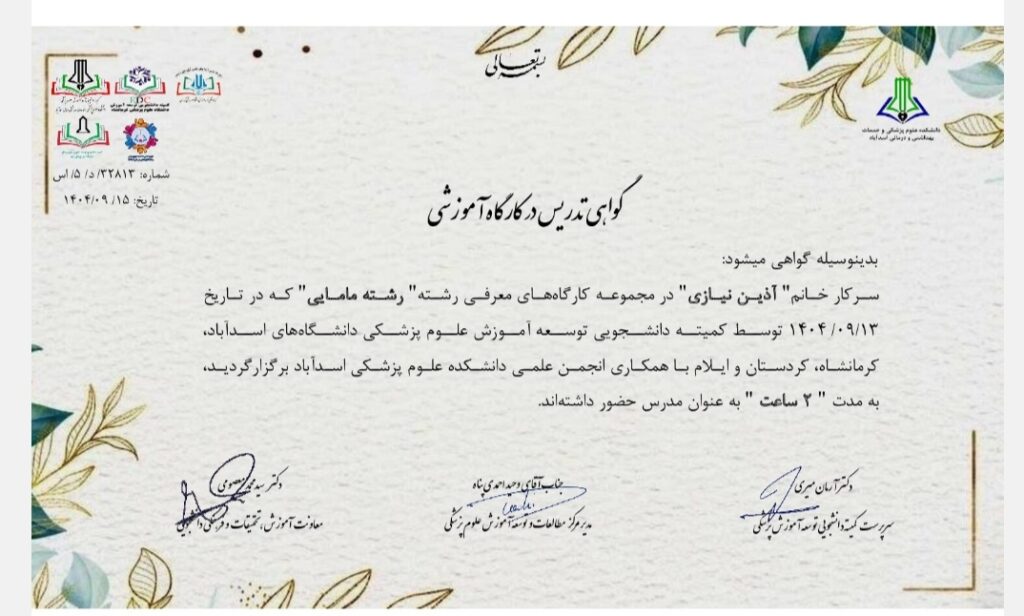 بسمه تعالی
EDC
دانشکده علوم پزشکی و خدمات
بهداشتی و درمانی اسدآباد
شماره: ۳۲۸۱۳/ د/ ۵/ اس
تاریخ: ۱۵/ ۰۹/ ۱۴۰۴
گواهی تدریس در کارگاه آموزشی
بدینوسیله گواهی میشود:
سرکار خانم" آذین نیازی" در مجموعه کارگاه‌های معرفی رشته" رشته مامایی" که در تاریخ
۱۴۰۴/۰۹/۱۳ توسط کمیته دانشجویی توسعه آموزش علوم پزشکی دانشگاه‌های اسدآباد،
کرمانشاه، کردستان و ایلام با همکاری انجمن علمی دانشکده علوم پزشکی اسدآباد برگزارگردید،
به مدت " ۲ ساعت " به عنوان مدرس حضور داشته‌اند.
دکتر آرمان میری
سرپرست کمیته دانشجویی توسعه آموزش پزشکی
جناب آقای وحید احمدی پناه
مدیر مرکز مطالعات و توسعه آموزش علوم پزشکی
دکتر سید محمد معصومی
معاونت آموزش، تحقیقات و فرهنگی دانشجویی